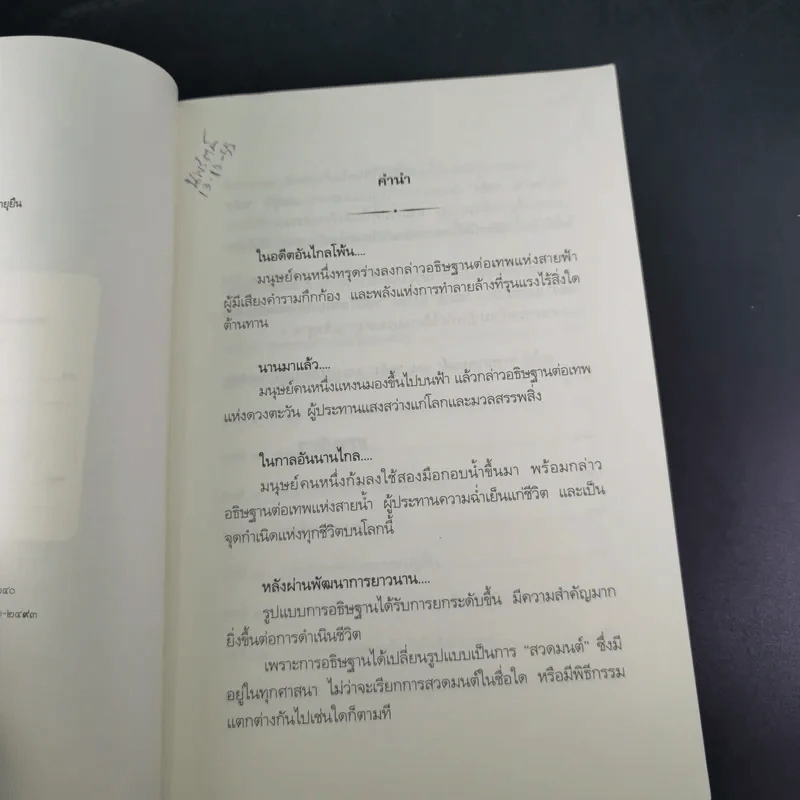 ายุยืน
๒๔๐
๐-๒๔๙๓
13-12-55
คำนำ
ในอดีตอันไกลโพ้น....
มนุษย์คนหนึ่งทรุดร่างลงกล่าวอธิษฐานต่อเทพแห่งสายฟ้า
ผู้มีเสียงคำรามกึกก้อง และพลังแห่งการทำลายล้างที่รุนแรงไร้สิ่งใด
ต้านทาน
นานมาแล้ว....
มนุษย์คนหนึ่งแหงนมองขึ้นไปบนฟ้า แล้วกล่าวอธิษฐานต่อเทพ
แห่งดวงตะวัน ผู้ประทานแสงสว่างแก่โลกและมวลสรรพสิ่ง
ในกาลอันนานไกล....
มนุษย์คนหนึ่งก้มลงใช้สองมือกอบน้ำขึ้นมา พร้อมกล่าว
อธิษฐานต่อเทพแห่งสายน้ำ ผู้ประทานความฉ่ำเย็นแก่ชีวิต และเป็น
จุดกำเนิดแห่งทุกชีวิตบนโลกนี้
หลังผ่านพัฒนาการยาวนาน....
รูปแบบการอธิษฐานได้รับการยกระดับขึ้น มีความสำคัญมาก
ยิ่งขึ้นต่อการดำเนินชีวิต
เพราะการอธิษฐานได้เปลี่ยนรูปแบบเป็นการ “สวดมนต์” ซึ่งมี
อยู่ในทุกศาสนา ไม่ว่าจะเรียกการสวดมนต์ในชื่อใด หรือมีพิธีกรรม
แตกต่างกันไปเช่นใดก็ตามที